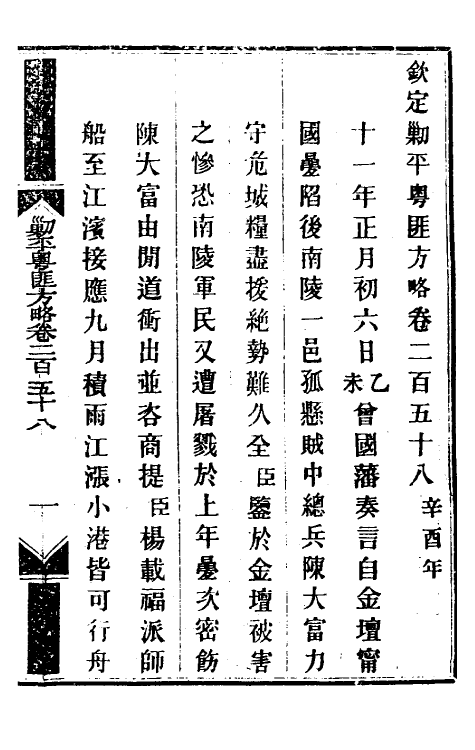 欽定勦平粵匪方略卷二百五十八 辛酉年
十一年正月初六日乙未曾國藩奏言自金壇甯
國疊陷後南陵一邑孤懸賊中總兵陳大富力
守危城糧盡援絶勢難久全臣鑒於金壇被害
之慘恐南陵軍民又遭屠戮於上年疊次密飭
陳大富由間道衝出並咨商提臣楊載福派師
船至江濱接應九月積雨江漲小港皆可行舟
勦平粵匪方略卷二百五十八
一